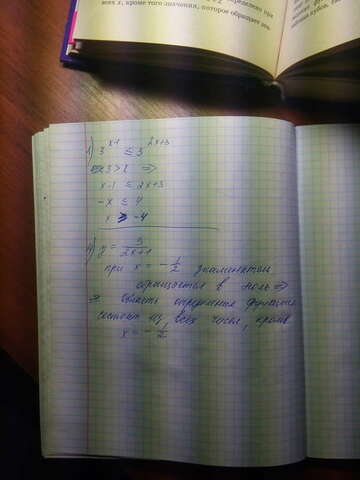 определено при
всех x, кроме того значения, которое обращает зна-
1) 3^{x-1} ≤ 3^{2x+3}
3 > 1 ⇒
x-1 ≤ 2x+3
-x ≤ 4
x ≥ -4
y = 5/(2x+1)
при x = -1/2 знаменатель
обращается в ноль ⇒
⇒ область определения функции
состоит из всех чисел, кроме
x = -1/2